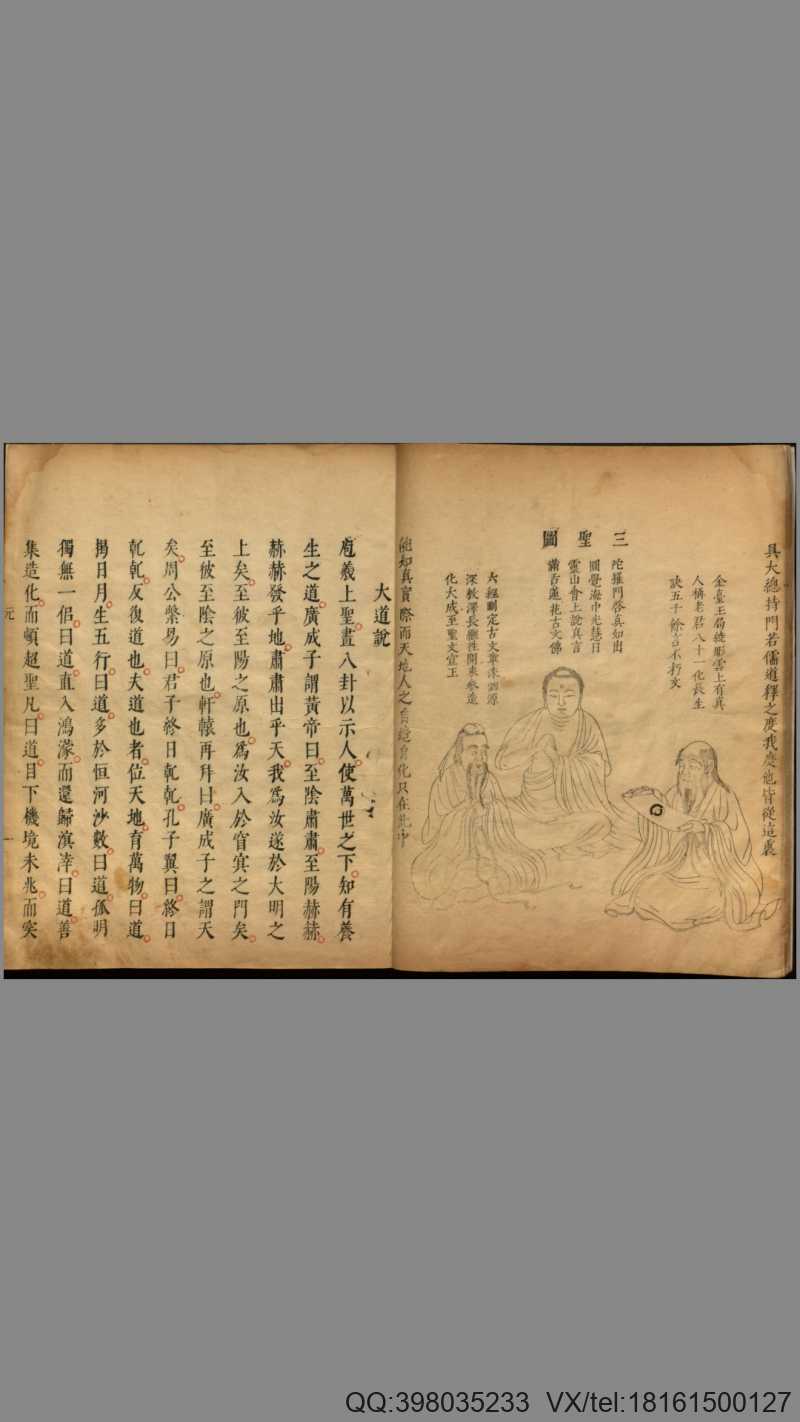 具大總持門若儒道釋之度我度他皆從這裏
三聖圖
金臺玉局繞彤雲上有真
人稱老君八十一化長生
訣五千餘言不朽文
陀羅門啓真如出
圓覺海中光慧日
靈山會上說真言
滿舌蓮花古文佛
六經刪定古文章洙泗源
深教澤長繼往開來參造
化大成至聖文宣王
能知真實際而天地人之自造自化只在此中
大道說
庖羲上聖畫八卦以示人使萬世之下知有養
生之道廣成子謂黃帝曰至陰肅肅至陽赫赫
赫赫發乎地肅肅出乎天我為汝遂於大明之
上矣至彼至陽之原也為汝入於窅冥之門矣
至彼至陰之原也軒轅再拜曰廣成子之謂天
矣周公繫易曰君子終日乾乾孔子翼曰終日
乾乾反復道也夫道也者位天地育萬物曰道
揭日月生五行曰道多於恒河沙數曰道孤明
獨無一侶曰道直入鴻濛而還歸溟涬曰道善
集造化而頓超聖凡曰道目下機境未兆而突
元
一
QQ:398035233 VX/tel:18161500127